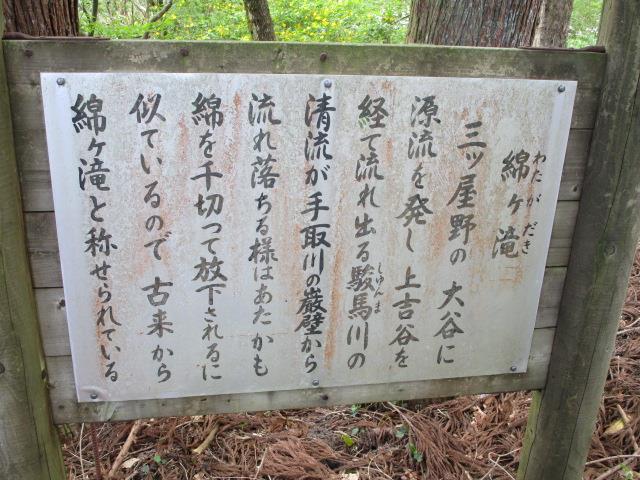 綿ヶ滝
わたがだき
三ッ屋野の大谷に
源流を発し上吉谷を
経て流れ出る駿馬川の
しゅんま
清流が手取川の巌壁から
流れ落ちる様はあたかも
綿を千切って放下されるに
似ているので古来から
綿ヶ滝と称せられている